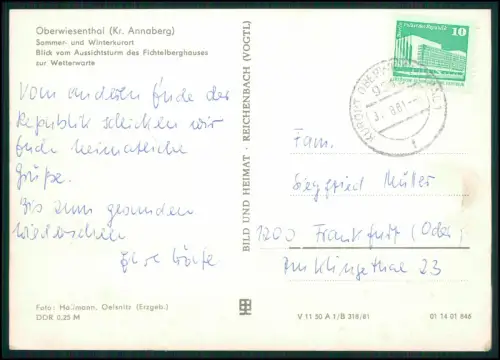 Oberwiesenthal (Kr. Annaberg)
Sommer- und Winterkurort
Blick vom Aussichtsturm des Fichtelberghauses
zur Wetterwarte
Vom anderen Ende der
Republik schicken wir
Euch heimatliche
Grüße.
Bis zum gesunden
Wiedersehen
Eure
Foto: Hoffmann, Oelsnitz (Erzgeb.)
DDR 0,25 M
BILD UND HEIMAT · REICHENBACH (VOGTL)
10
KURORT
Fam.
Siegfried Müller
1200 Frankfurt (Oder)
Am Klingethal 23
V 11 50 A 1/B 318/81
01 14 01 846